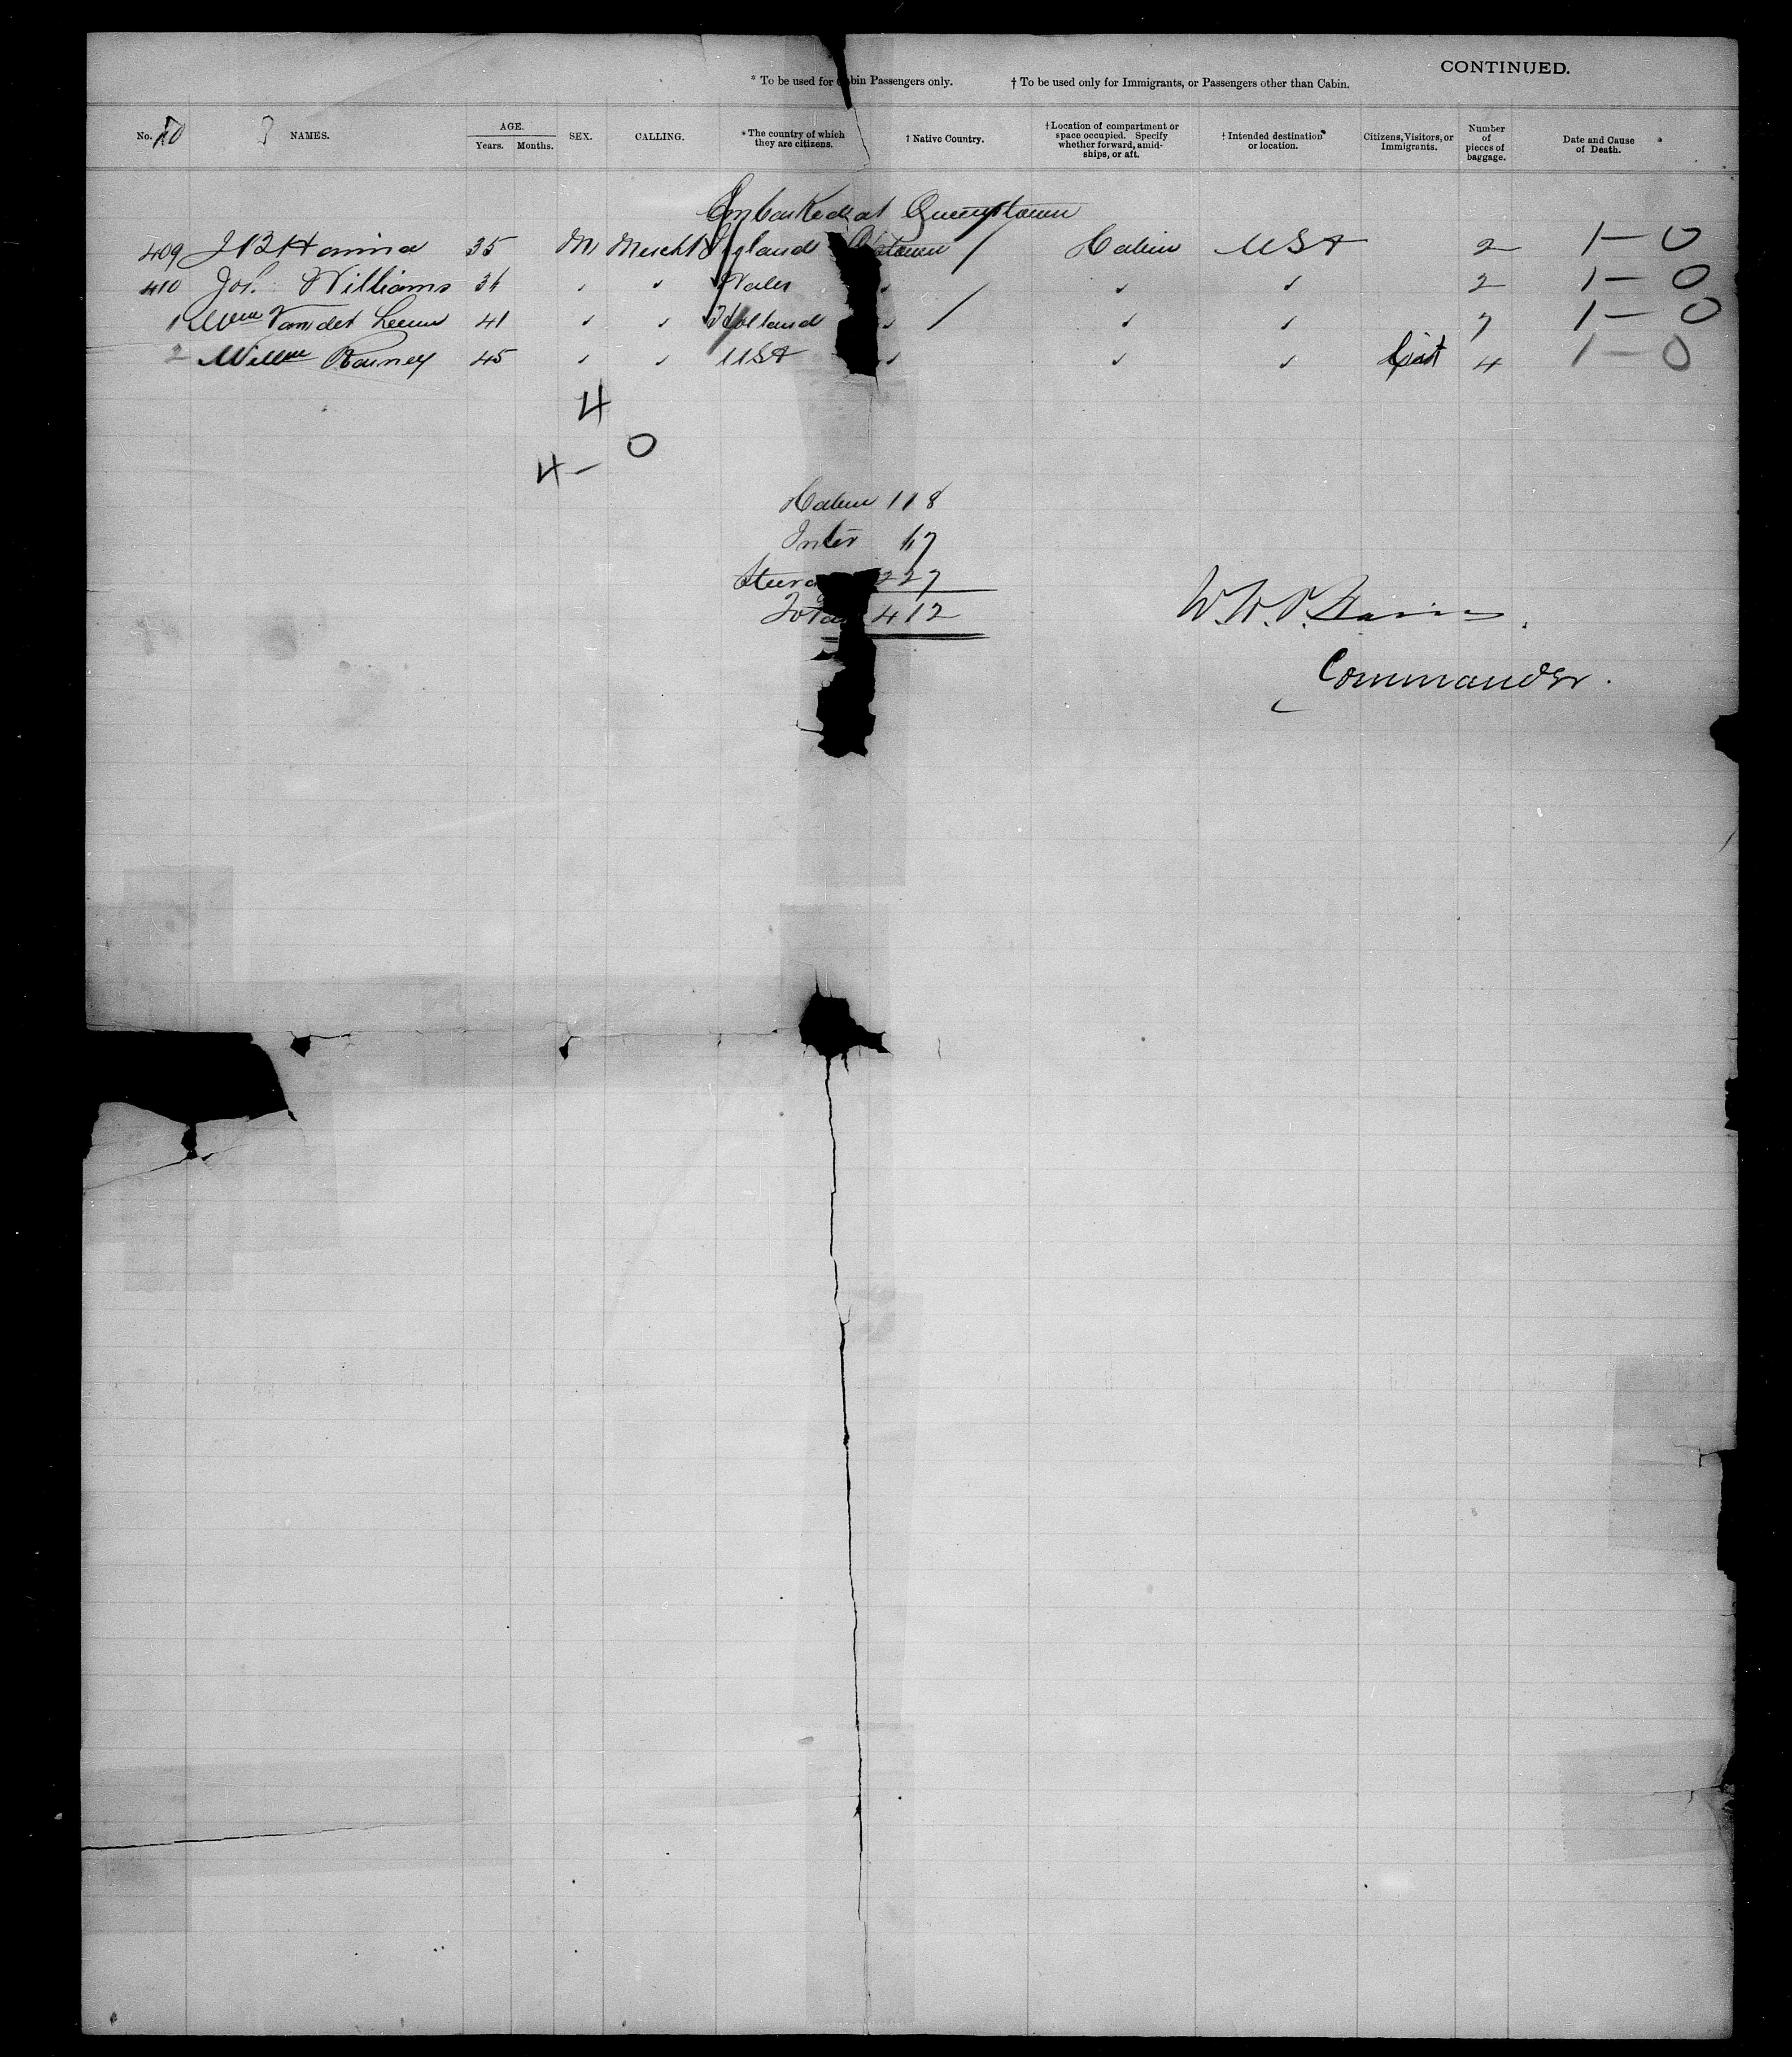 CONTINUED.
* To be used for Cabin Passengers only. † To be used only for Immigrants, or Passengers other than Cabin.
No. NAMES. AGE. Years. Months. SEX. CALLING. * The country of which they are citizens. † Native Country. † Location of compartment or space occupied. Specify whether forward, amidships, or aft. † Intended destination or location. Citizens, Visitors, or Immigrants. Number of pieces of baggage. Date and Cause of Death.
Embarked at Queenstown
409 J B Hanna 35 M Mercht / Cabin USA 2 1 - 0
410 Jos. Williams 36 " " Wales " " " 2 1 - 0
1 Wm Van der Leeuw 41 " " Holland " / " " 7 1 - 0
2 Willm Rainey 45 " " USA " " " 4 1 - 0
4
0
4 -
Cabin 118
Inter 67
Steera 227
Total 412
W. W. P.
Commander.